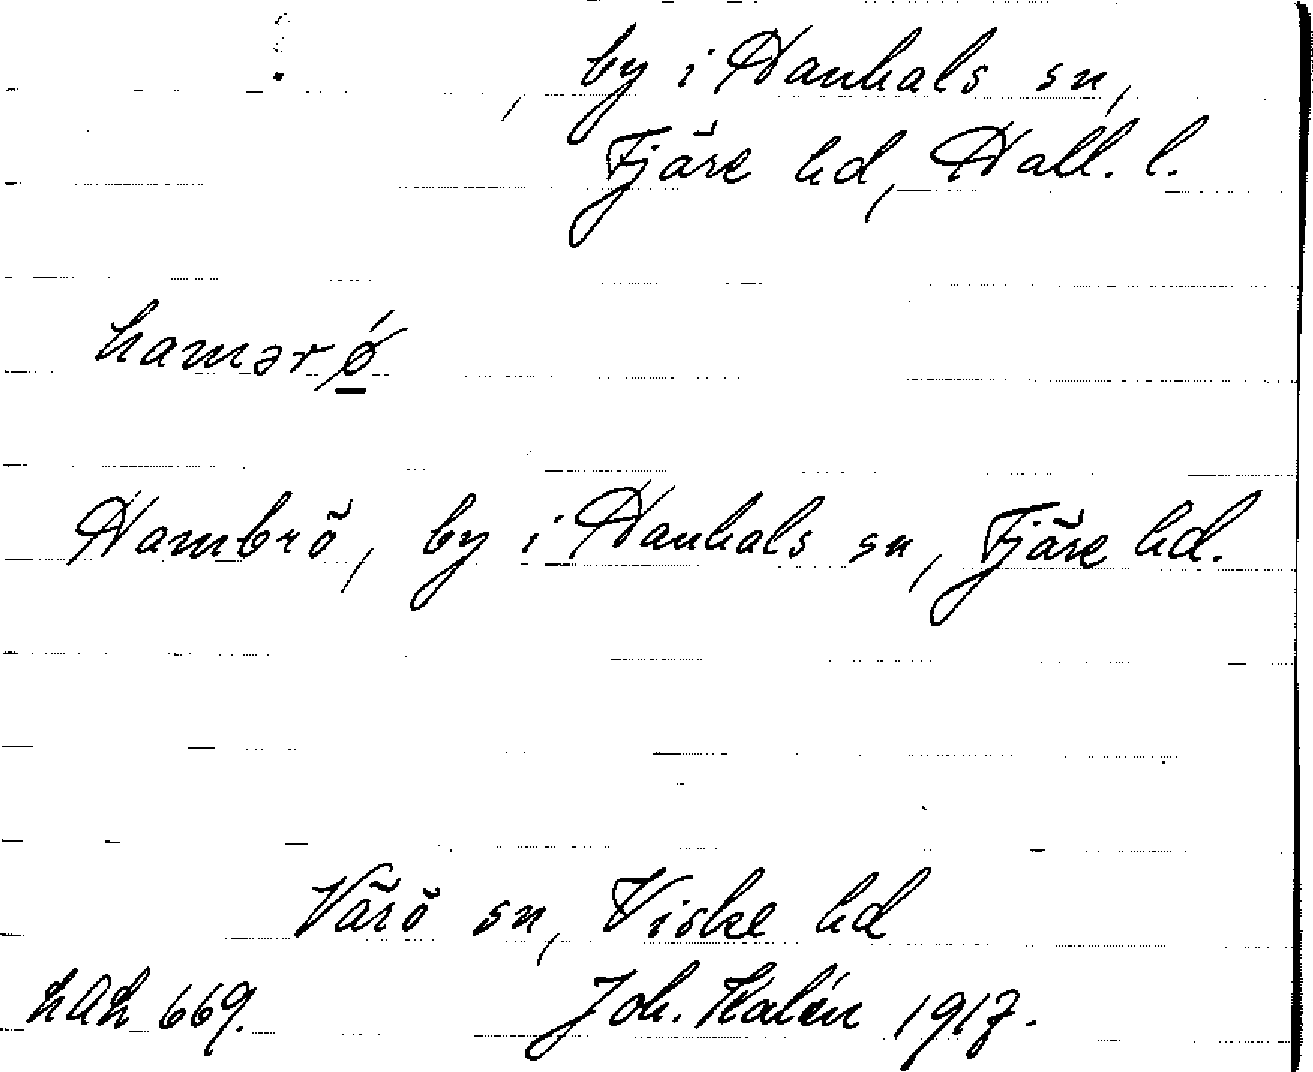 , by i Hanhals sn,
Fjäre hd, Hall. l.
hamərǿ
Hambrö, by i Hanhals sn, Fjäre hd.
Värö sn, Viske hd
669. Joh. Kalén 1917.